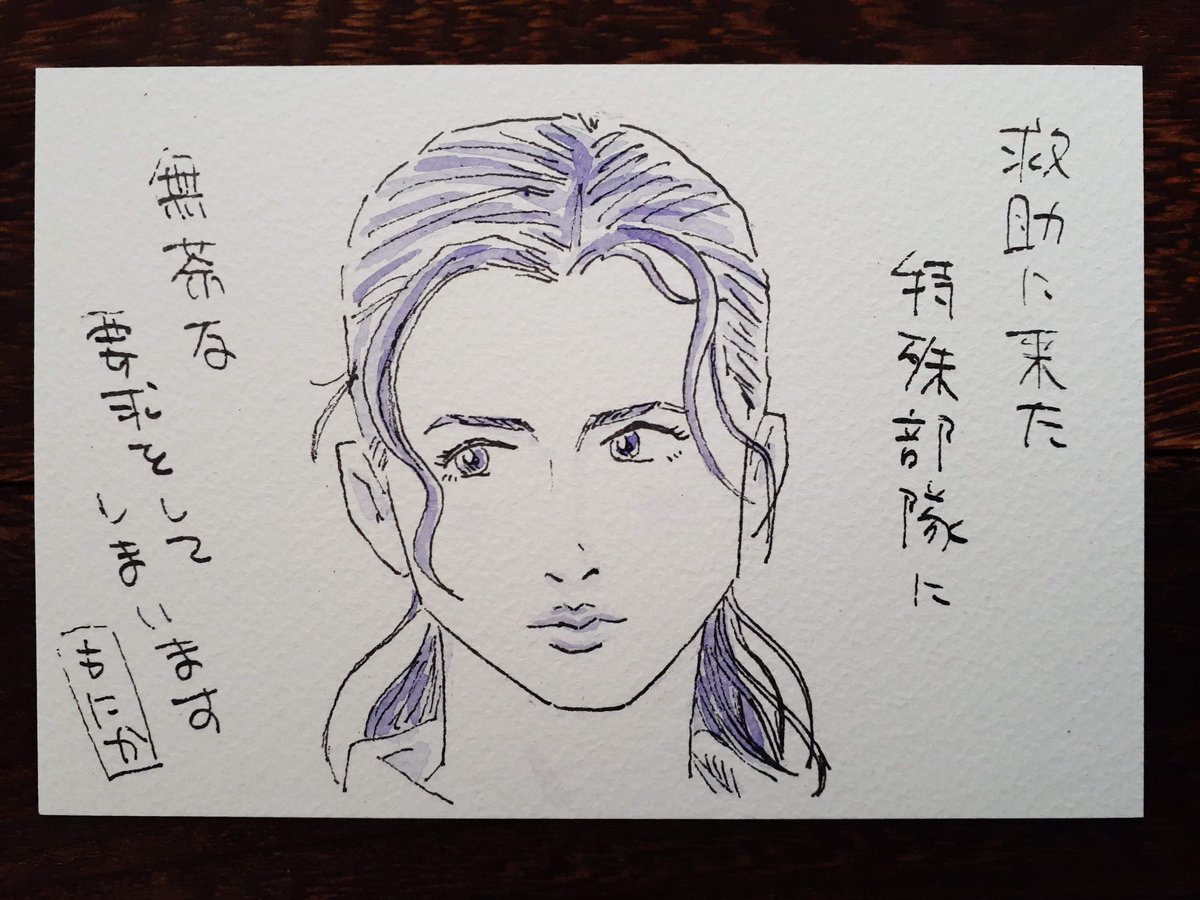 救助に来た
特殊部隊に
無茶な
要求をして
しまいます